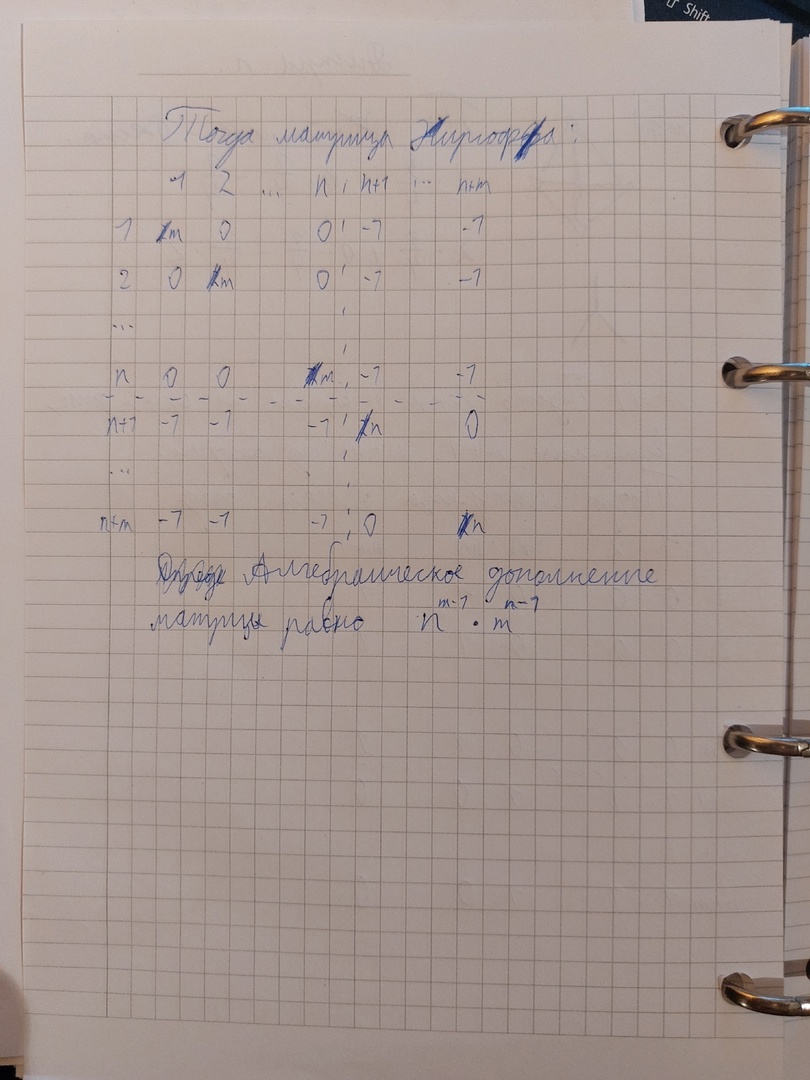 Shift
Тогда матрица Киргофа:
1 2 ... n n+1 ... n+m
1 m 0 0 -1 -1
2 0 m 0 -1 -1
...
n 0 0 m -1 -1
n+1 -1 -1 -1 n 0
...
n+m -1 -1 -1 0 n
Алгебраическое дополнение
матрицы равно n^{m-1} · m^{n-1}